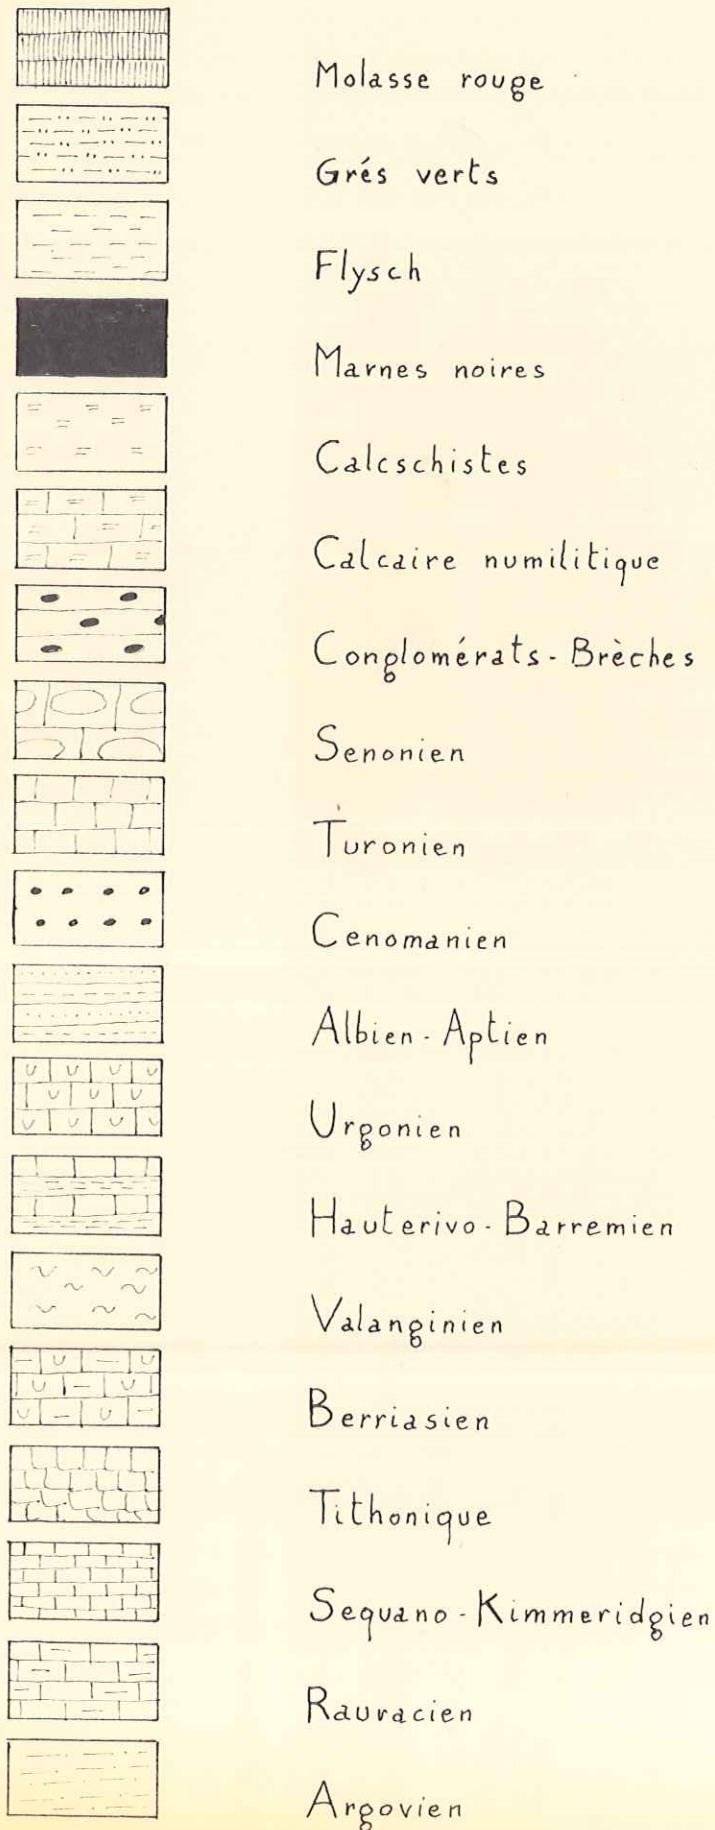 Molasse rouge
Grés verts
Flysch
Marnes noires
Calcschistes
Calcaire numilitique
Conglomérats - Brèches
Senonien
Turonien
Cenomanien
Albien - Aptien
Urgonien
Hauterivo - Barremien
Valanginien
Berriasien
Tithonique
Sequano - Kimmeridgien
Rauracien
Argovien